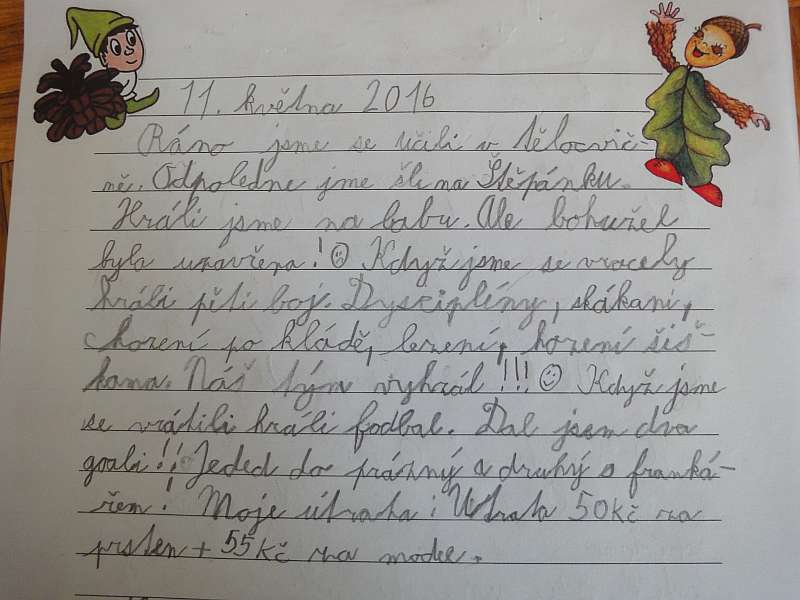 11. května 2016
Ráno jsme se učili v tělocvič-
ně. Odpoledne jme šli na Štěpánku.
Hráli jsme na babu. Ale bohužel
byla uzavřena! ☹ Když jsme se vracely
hráli pěti boj. Dysciplíny, skákani,
chození po kládě, lezení, hození šiš-
kama. Náš tým vyhrál!!! ☺ Když jsme
se vrátili hráli fodbal. Dal jsem dva
goali!! Jeded do prázný a druhý s franká-
řem! Moje útrata: Utrata 50Kč za
prsten + 55Kč za model.